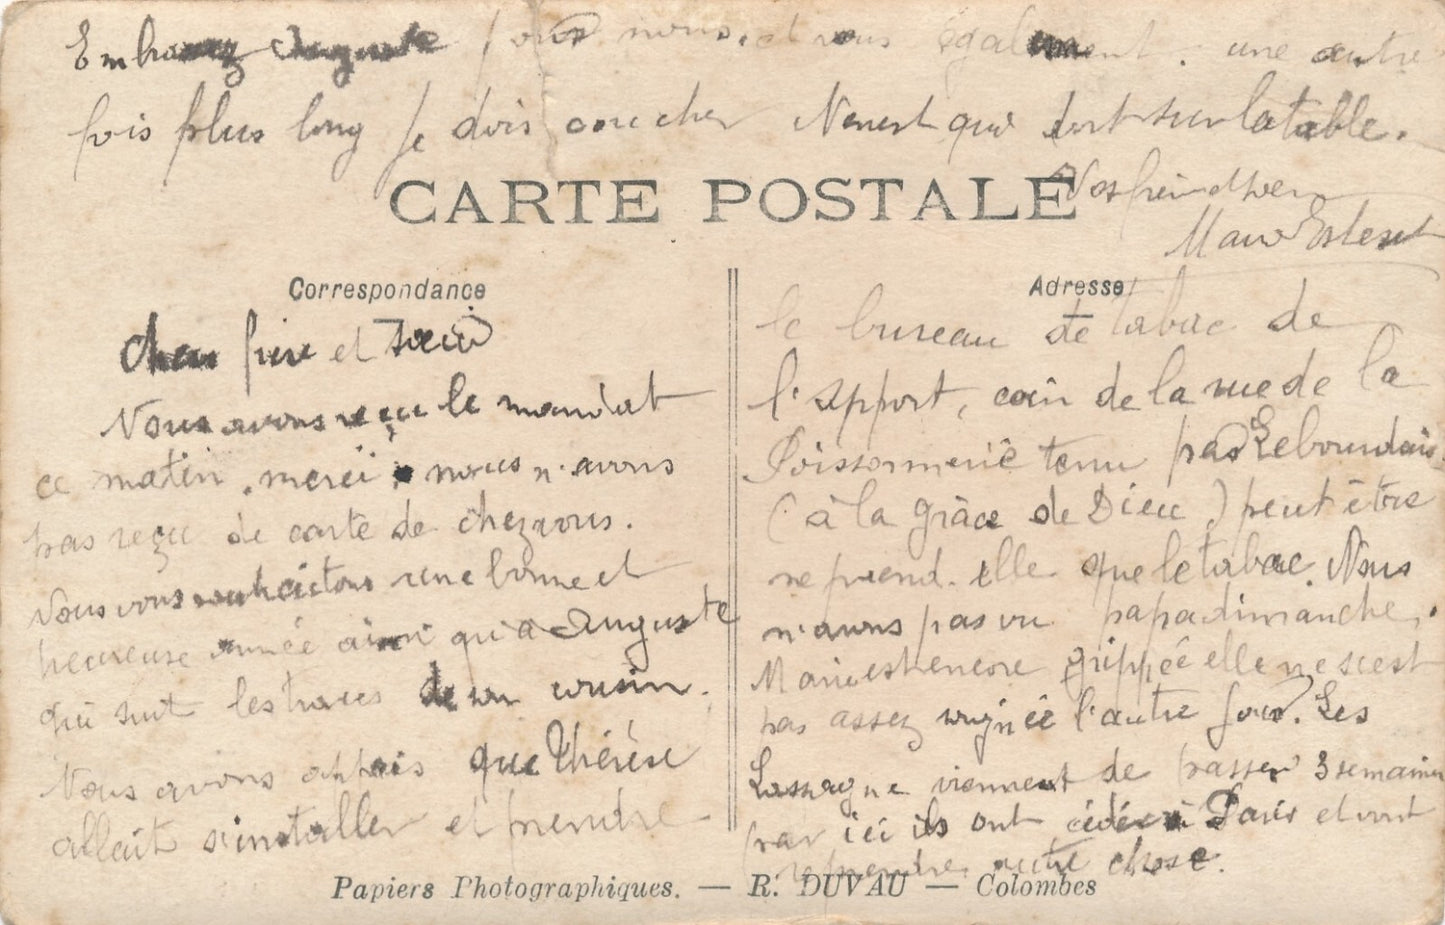 Embrassez Auguste pour nous, et vous également. une autre
fois plus long Je dois coucher qui dort sur la table.
Vos frère et sœur
CARTE POSTALE
Correspondance
Cher frère et sœur
Nous avons reçu le mandat
ce matin, merci nous n'avons
pas reçu de carte de chez vous.
Nous vous souhaitons une bonne et
heureuse année ainsi qu'à Auguste
qui suit les traces de son cousin.
Nous avons appris que Thérèse
allait s'installer et prendre
Adresse
le bureau de tabac de
l'apport, coin de la rue de la
Poissonnerie tenu par Lebourdais
(à la grâce de Dieu) peut être
ne prend-elle que le tabac. Nous
n'avons pas vu papa dimanche.
Marie est encore grippée elle ne s'est
pas assez soignée l'autre jour. Les
Lassagne viennent de passer 3 semaines
par ici ils ont cédé à Paris et vont
reprendre autre chose.
Papiers Photographiques. — R. DUVAU — Colombes